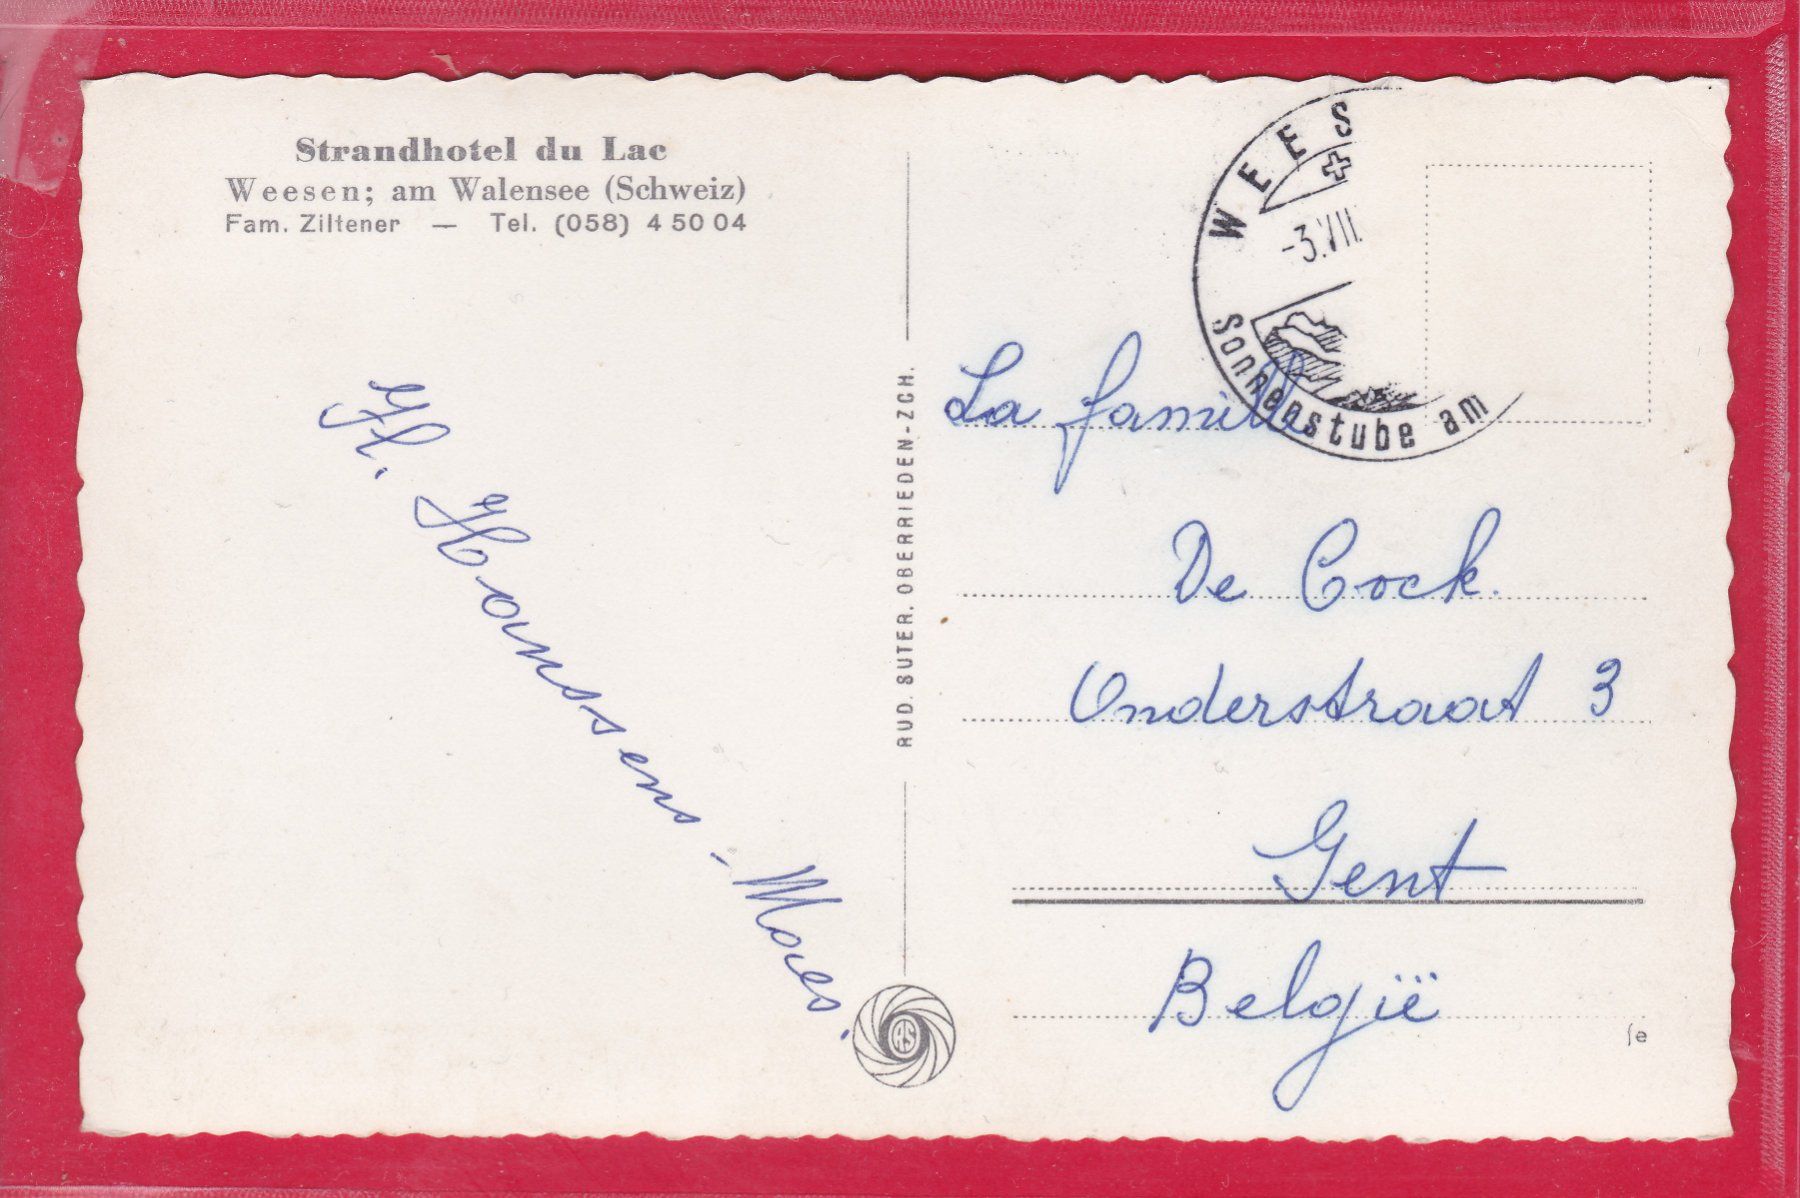 Strandhotel du Lac
Weesen; am Walensee (Schweiz)
Fam. Ziltener — Tel. (058) 4 50 04
Haussens - Maes.
RUD. SUTER. OBERRIEDEN-ZCH.
RS
WEES
-3.VII.
Sonnenstube am
La famille
De Cock.
Onderstraat 3
Gent
België